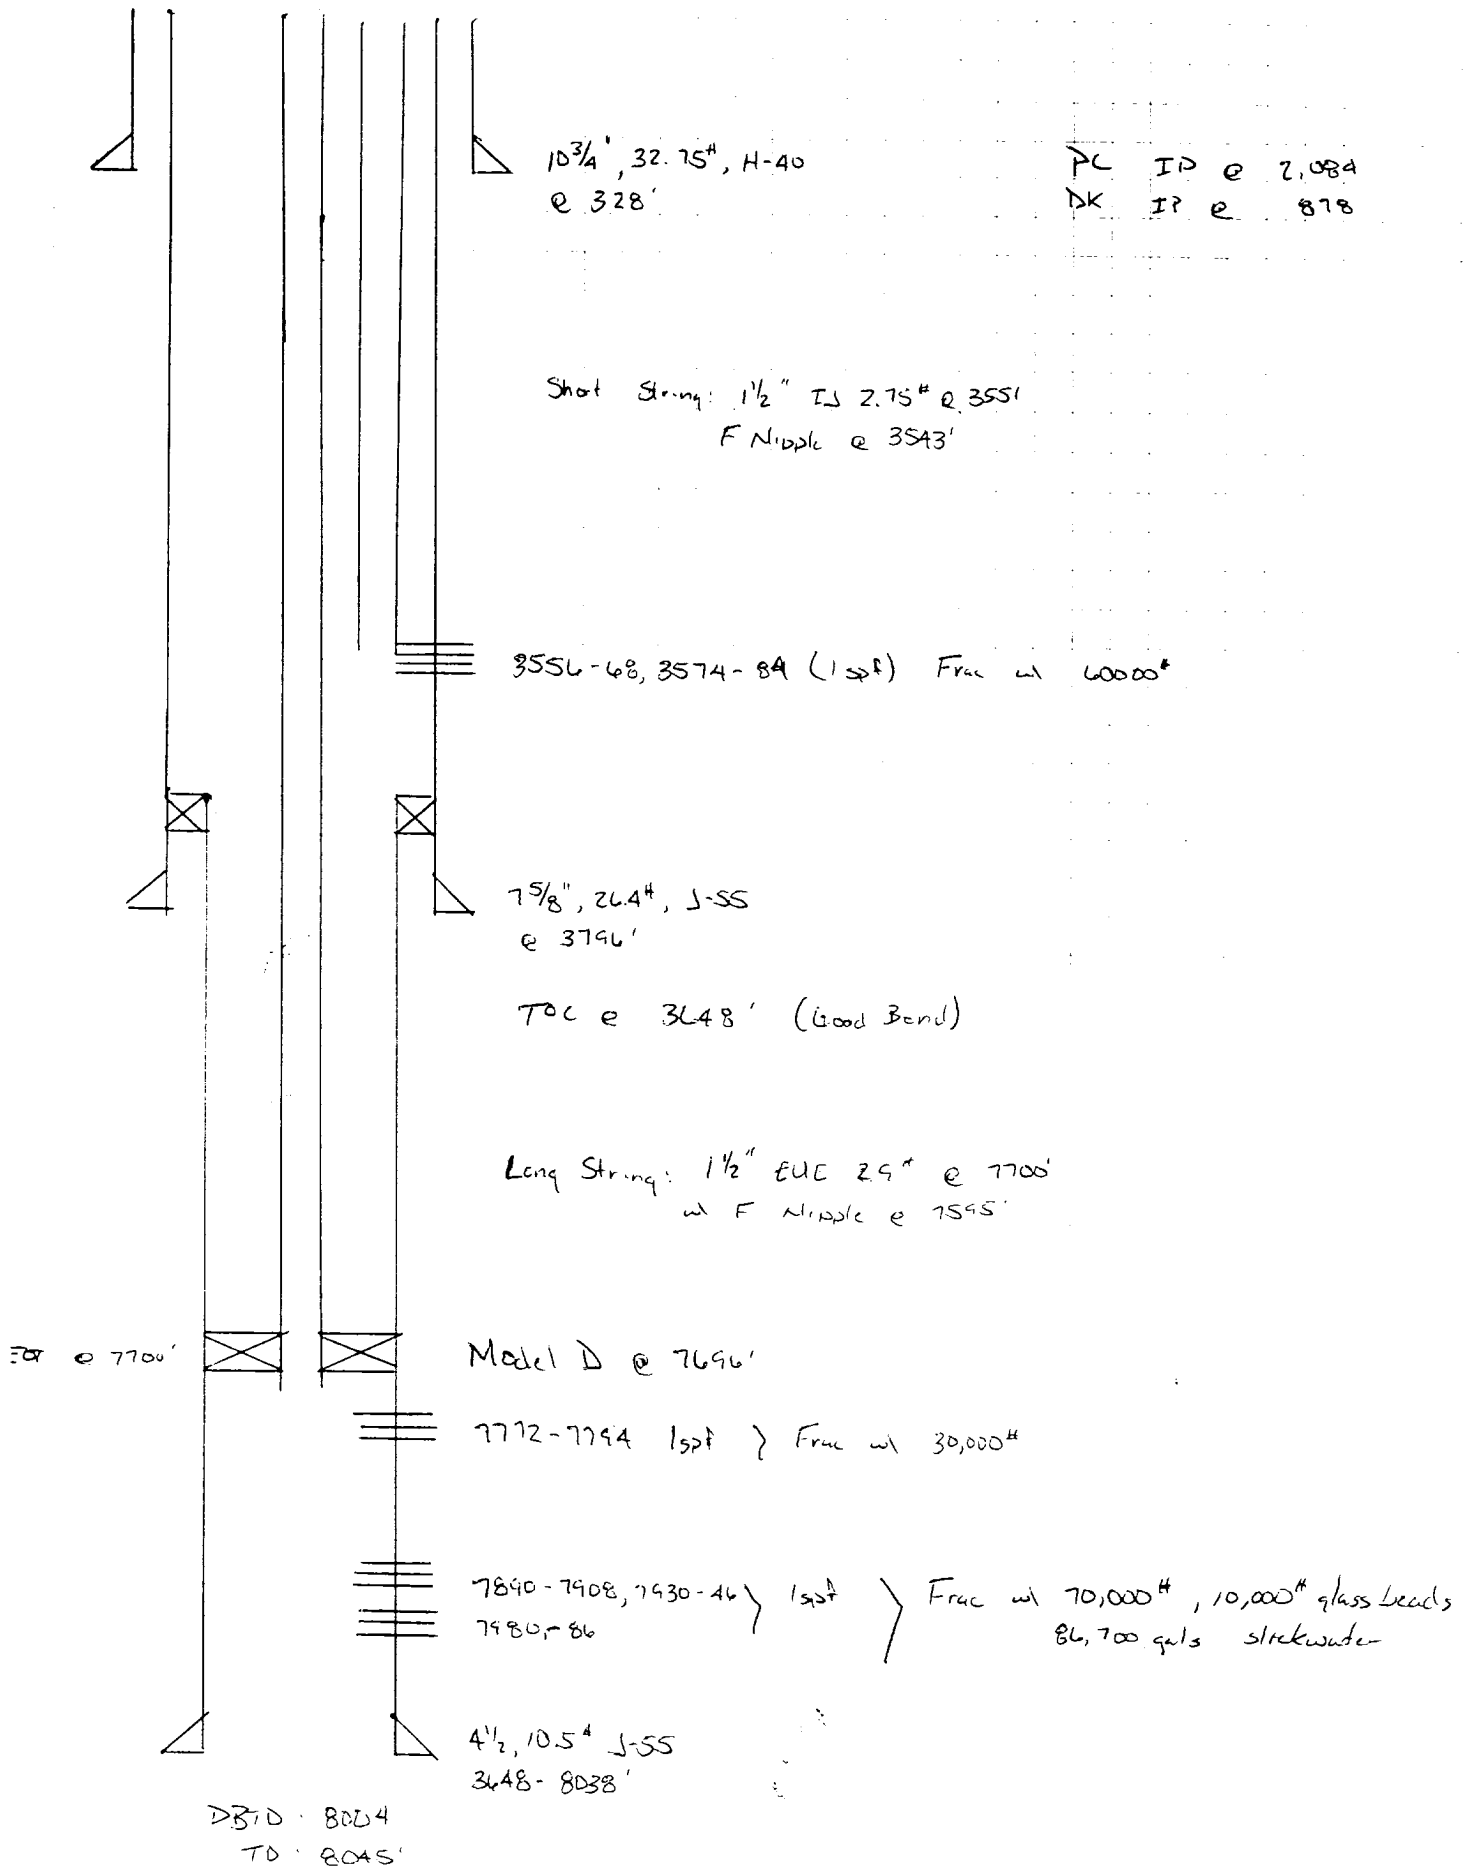 10 3/4", 32.75#, H-40
@ 328'
PC IP @ 2,084
DK IP @ 878
Short String: 1 1/2" IJ 2.75# @ 3551
F Nipple @ 3543'
3556-68, 3574-84 (1 spf) Frac w/ 60000#
7 5/8", 26.4#, J-55
@ 3796'
TOC @ 3648' (Good Bond)
Long String: 1 1/2" EUE 2.9# @ 7700'
w/ F Nipple @ 7595'
EOT @ 7700'
Model D @ 7696'
7772-7794 1spf } Frac w/ 30,000#
7890-7908, 7930-46 } 1spf } Frac w/ 70,000#, 10,000# glass beads
7980-86
86,700 gals slickwater
4 1/2, 10.5# J-55
3648-8038'
PBTD: 8004
TD: 8045'